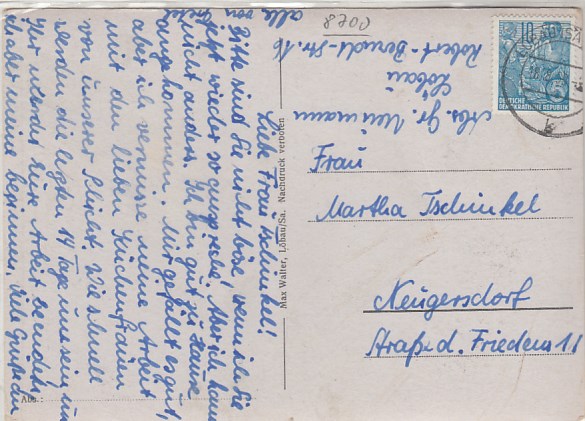 Liebe Frau Tschinkel!
Bitte sind Sie nicht böse, wenn ich Sie
jetzt wieder so anspreche, Aber ich kann
nicht anders. Ich bin gut zu Hause
angekommen. Mir gefällt es gut,
aber ich vermisse meine Arbeit
mit den lieben Küchenfrauen
von unserer Schicht. Wie schnell
werden die letzten 14 Tage um sein u.
Ihr werdet Eure Arbeit beenden
u. aber meine beginnen. Viele Grüße an
alle von
8700
Abs. Gr. Neumann
Löbau
Robert-Berndt-Str. 16
10
DEUTSCHE
DEMOKRATISCHE REPUBLIK
Max Walter, Löbau/Sa. Nachdruck verboten
Frau
Martha Tschinkel
Neugersdorf
Straße d. Friedens 11
Abs.: